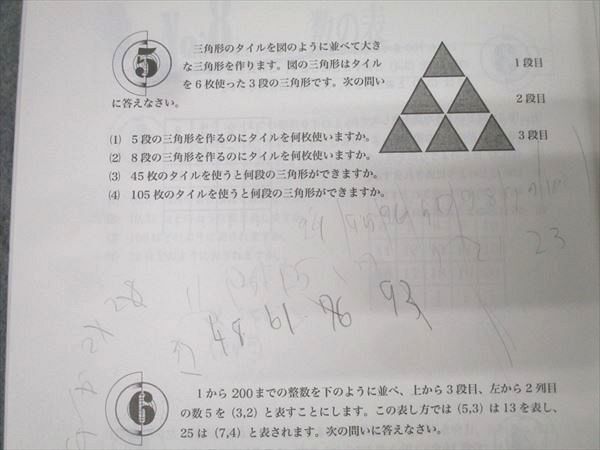 5
三角形のタイルを図のように並べて大き
な三角形を作ります。図の三角形はタイル
を6枚使った3段の三角形です。次の問い
に答えなさい。
1段目
2段目
3段目
(1) 5段の三角形を作るのにタイルを何枚使いますか。
(2) 8段の三角形を作るのにタイルを何枚使いますか。
(3) 45枚のタイルを使うと何段の三角形ができますか。
(4) 105枚のタイルを使うと何段の三角形ができますか。
94 95 96
23
11
28
48 61 76 93
6
1から200までの整数を下のように並べ、上から3段目、左から2列目
の数5を(3,2)と表すことにします。この表し方では(5,3)は13を表し、
25は(7,4)と表されます。次の問いに答えなさい。